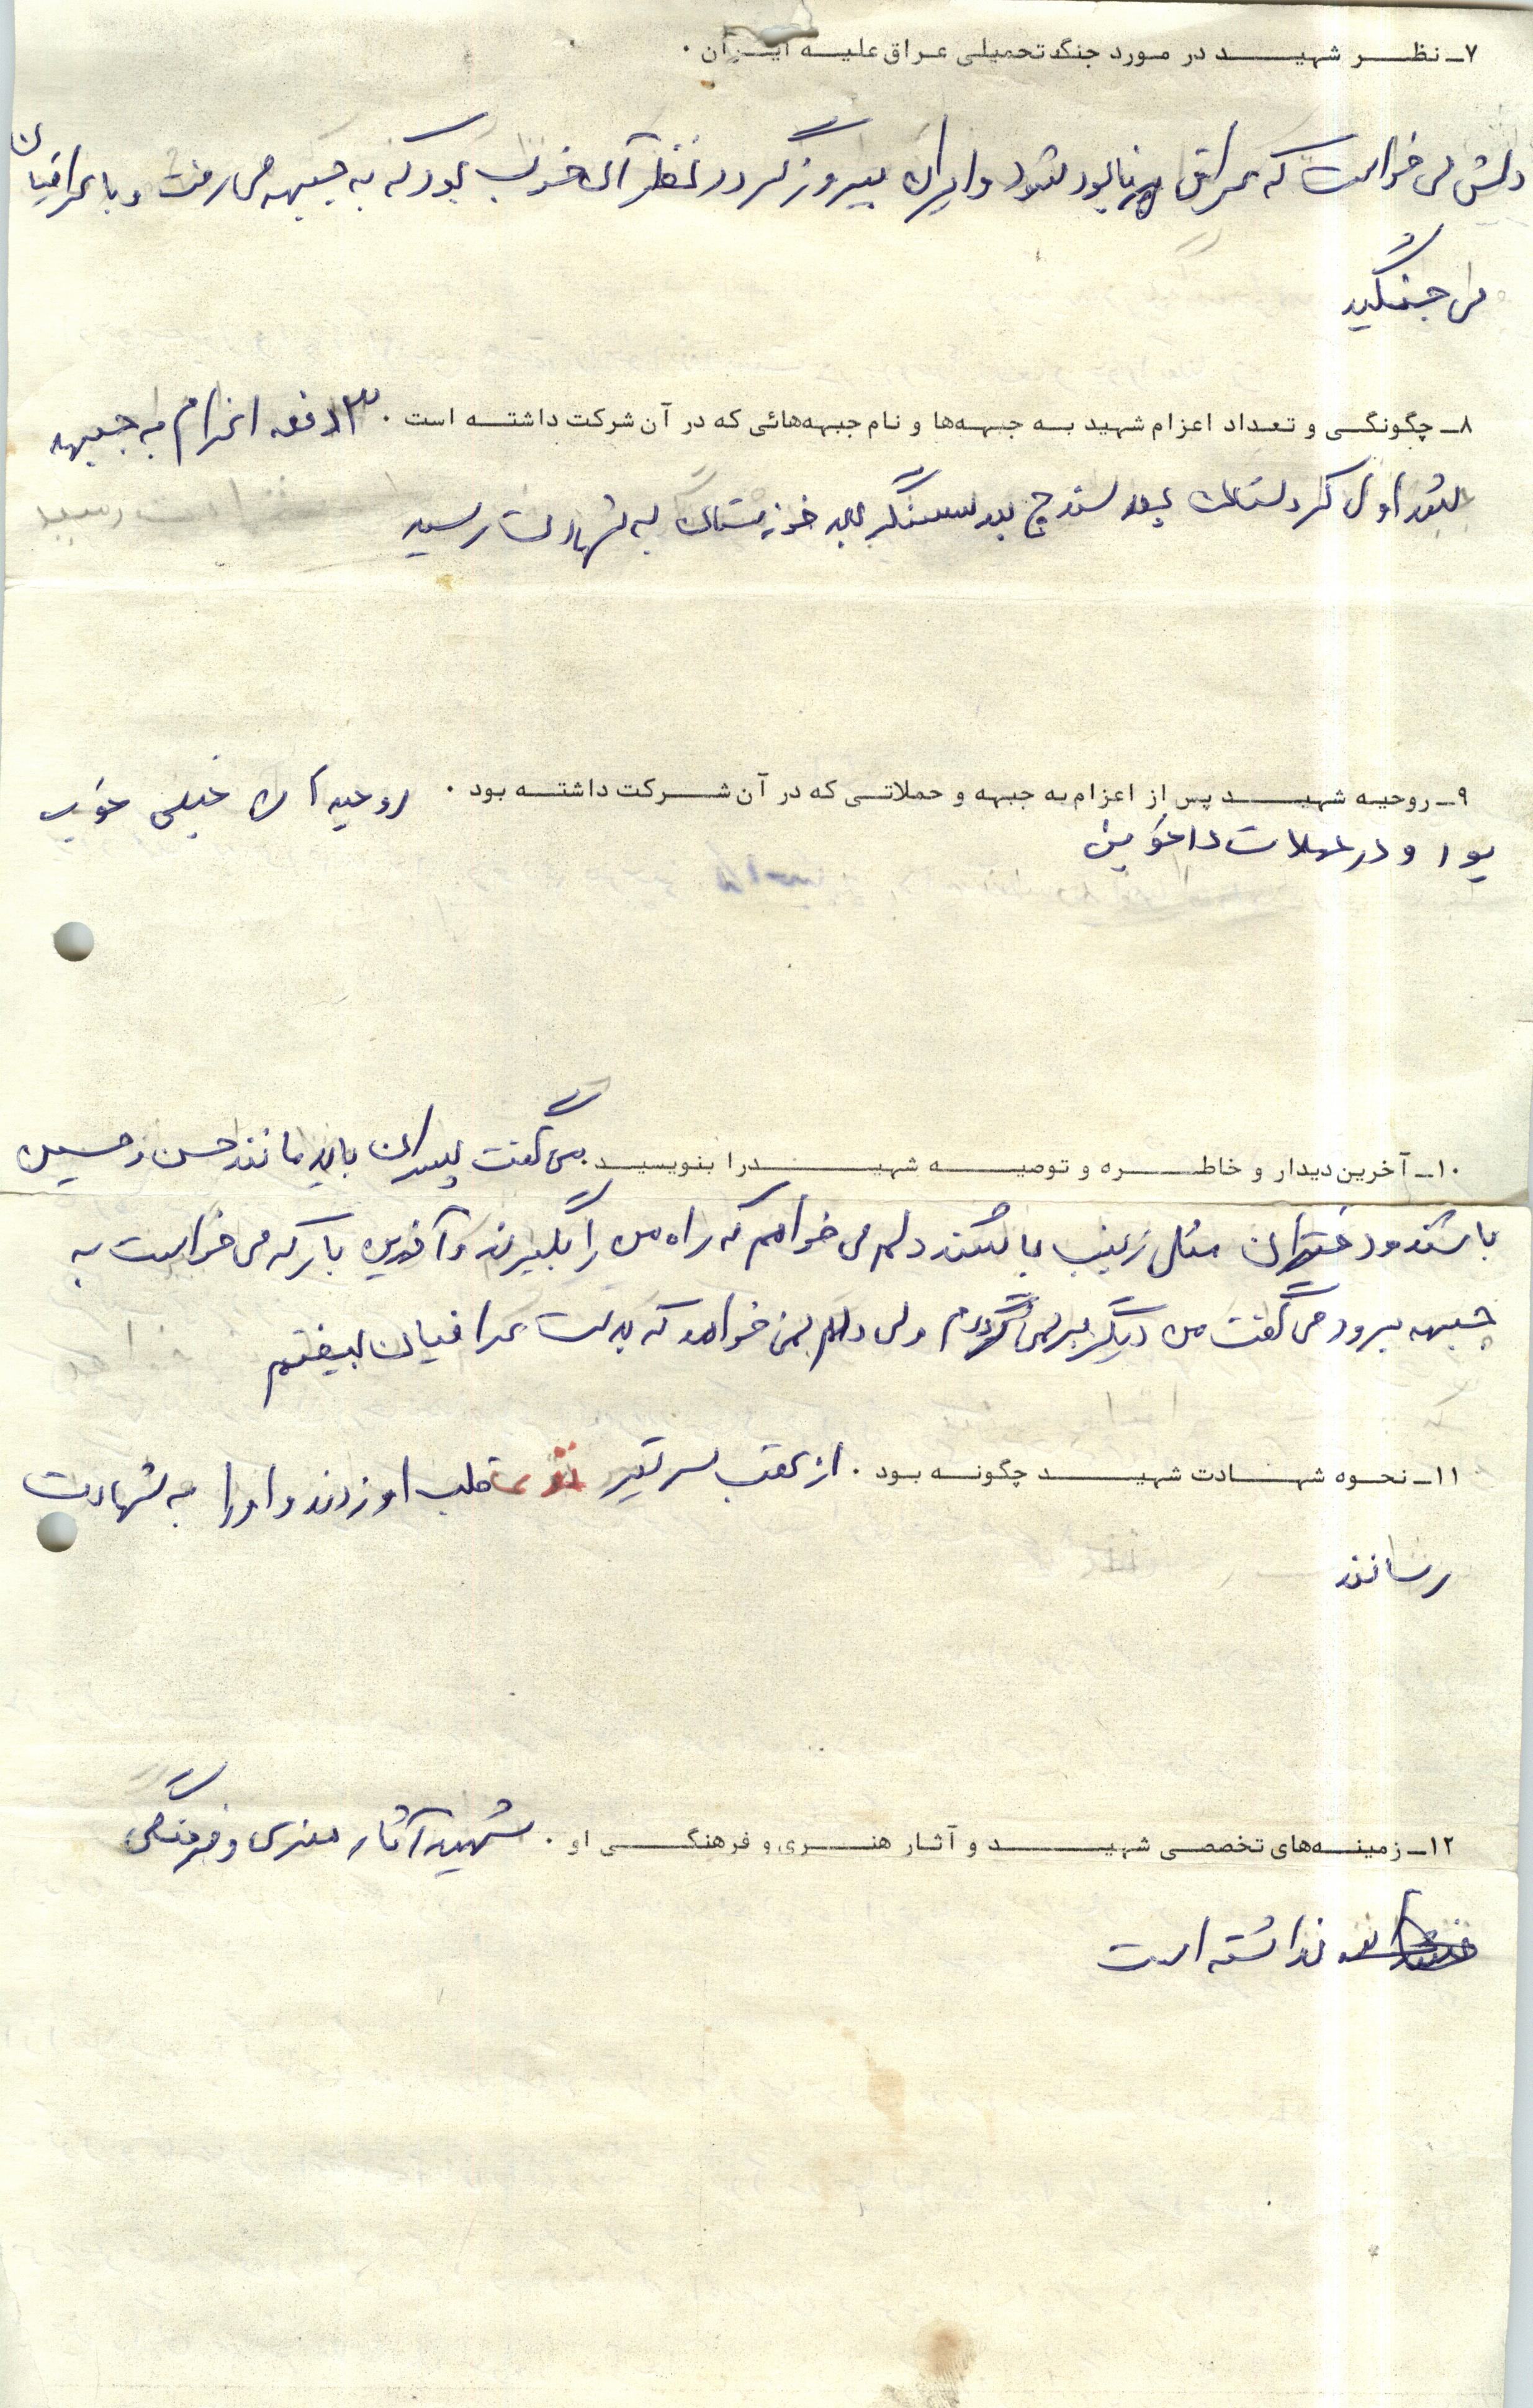 ۷ـ نظر شهید در مورد جنگ تحمیلی عراق علیه ایران ۰
دلش می خواست که عراق نابود شود و ایران پیروز گردد نظر آن خوب بود که به جبهه می رفت و با عراقیان
می جنگید
۸ـ چگونگی و تعداد اعزام شهید به جبهه‌ها و نام جبهه‌هائی که در آن شرکت داشته است ۰ ۳ دفعه اعزام به جبهه
شد اول کردستان بعد سنندج بعد سوسنگرد بعد خوزستان به شهادت رسید
۹ـ روحیه شهید پس از اعزام به جبهه و حملاتی که در آن شرکت داشته بود ۰ روحیه آن خیلی خوب
بود و در عملات دارخوین
۱۰ـ آخرین دیدار و خاطره و توصیه شهید را بنویسید ۰ می گفت پسران باید مانند حسن و حسین
باشند و دختران مثل زینب باشند دلم می خواهم که راه من را بگیرند و آخرین بار که می خواست به
جبهه برود می گفت من دیگر برنمی گردم ولی دلم نمی خواهد که بدست عراقیان بیفتم
۱۱ـ نحوه شهادت شهید چگونه بود ۰ از عقب سر تیر قلب او زدند و او را به شهادت
رساندند
۱۲ـ زمینه‌های تخصصی شهید و آثار هنری و فرهنگی او ۰ شهید آثار هنری و فرهنگی
نداشته است